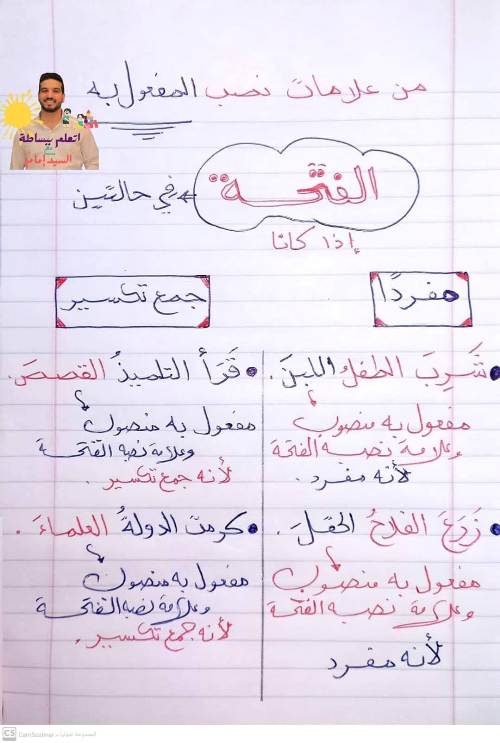 من علامات نصب المفعول به
اتعلم ببساطة
السيد إمام
الفتحة
في حالتين
إذا كان
مفردًا
شَرِبَ الطفلُ اللبنَ.
مفعول به منصوب
وعلامة نصبه الفتحة
لأنه مفرد.
زَرَعَ الفلاحُ الحقلَ.
مفعول به منصوب
وعلامة نصبه الفتحة
لأنه مفرد
جمع تكسير
قَرَأَ التلميذُ القصصَ.
مفعول به منصوب
وعلامة نصبه الفتحة
لأنه جمع تكسير.
كرمت الدولةُ العلماءَ.
مفعول به منصوب
وعلامة نصبه الفتحة
لأنه جمع تكسير.
CS CamScanner